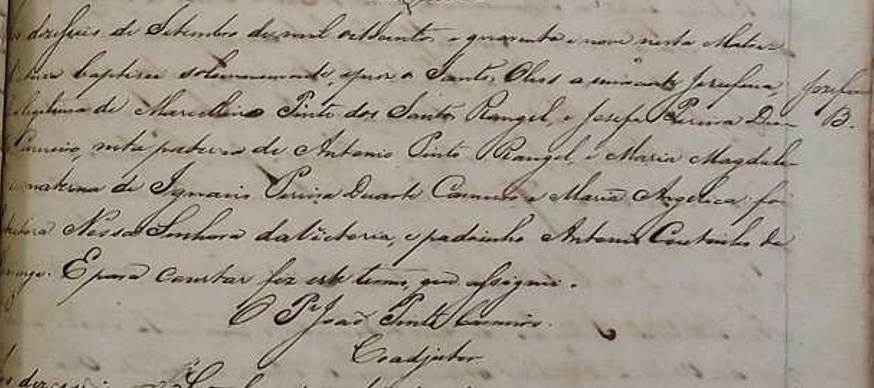 dezeseis de Setembro de mil oitocentos e quarenta e nove nesta Matriz
baptisei solemnemente, e puz os Santos Oleos a innocente Josefina, Josefina
legitima de Marcellino Pinto dos Santos Rangel, e Josefa Pereira Dua- B.
Carneiro, neta paterna de Antonio Pinto Rangel, e Maria Magdale-
materna de Ignacio Pereira Duarte Carneiro e Maria Angelica: foi
Nossa Senhora da Victoria, e padrinho Antonio Coutinho de
E para constar fiz este termo, que assignei.
O Pe. João Pinto Carneiro.
Coadjutor